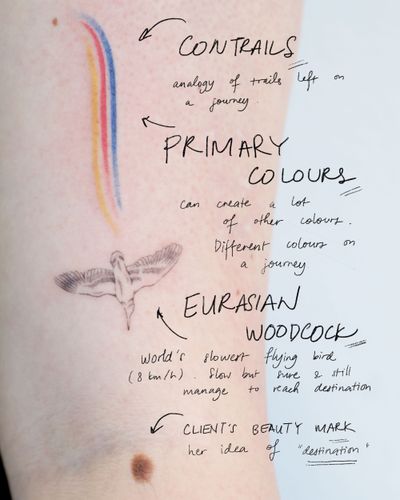 CONTRAILS
analogy of trails left on
a journey.
PRIMARY
COLOURS
can create a lot
of other colours.
Different colours on
a journey
EURASIAN
WOODCOCK
world's slowest flying bird
(8 km/h). slow but sure & still
manage to reach destination
CLIENT'S BEAUTY MARK
her idea of "destination"